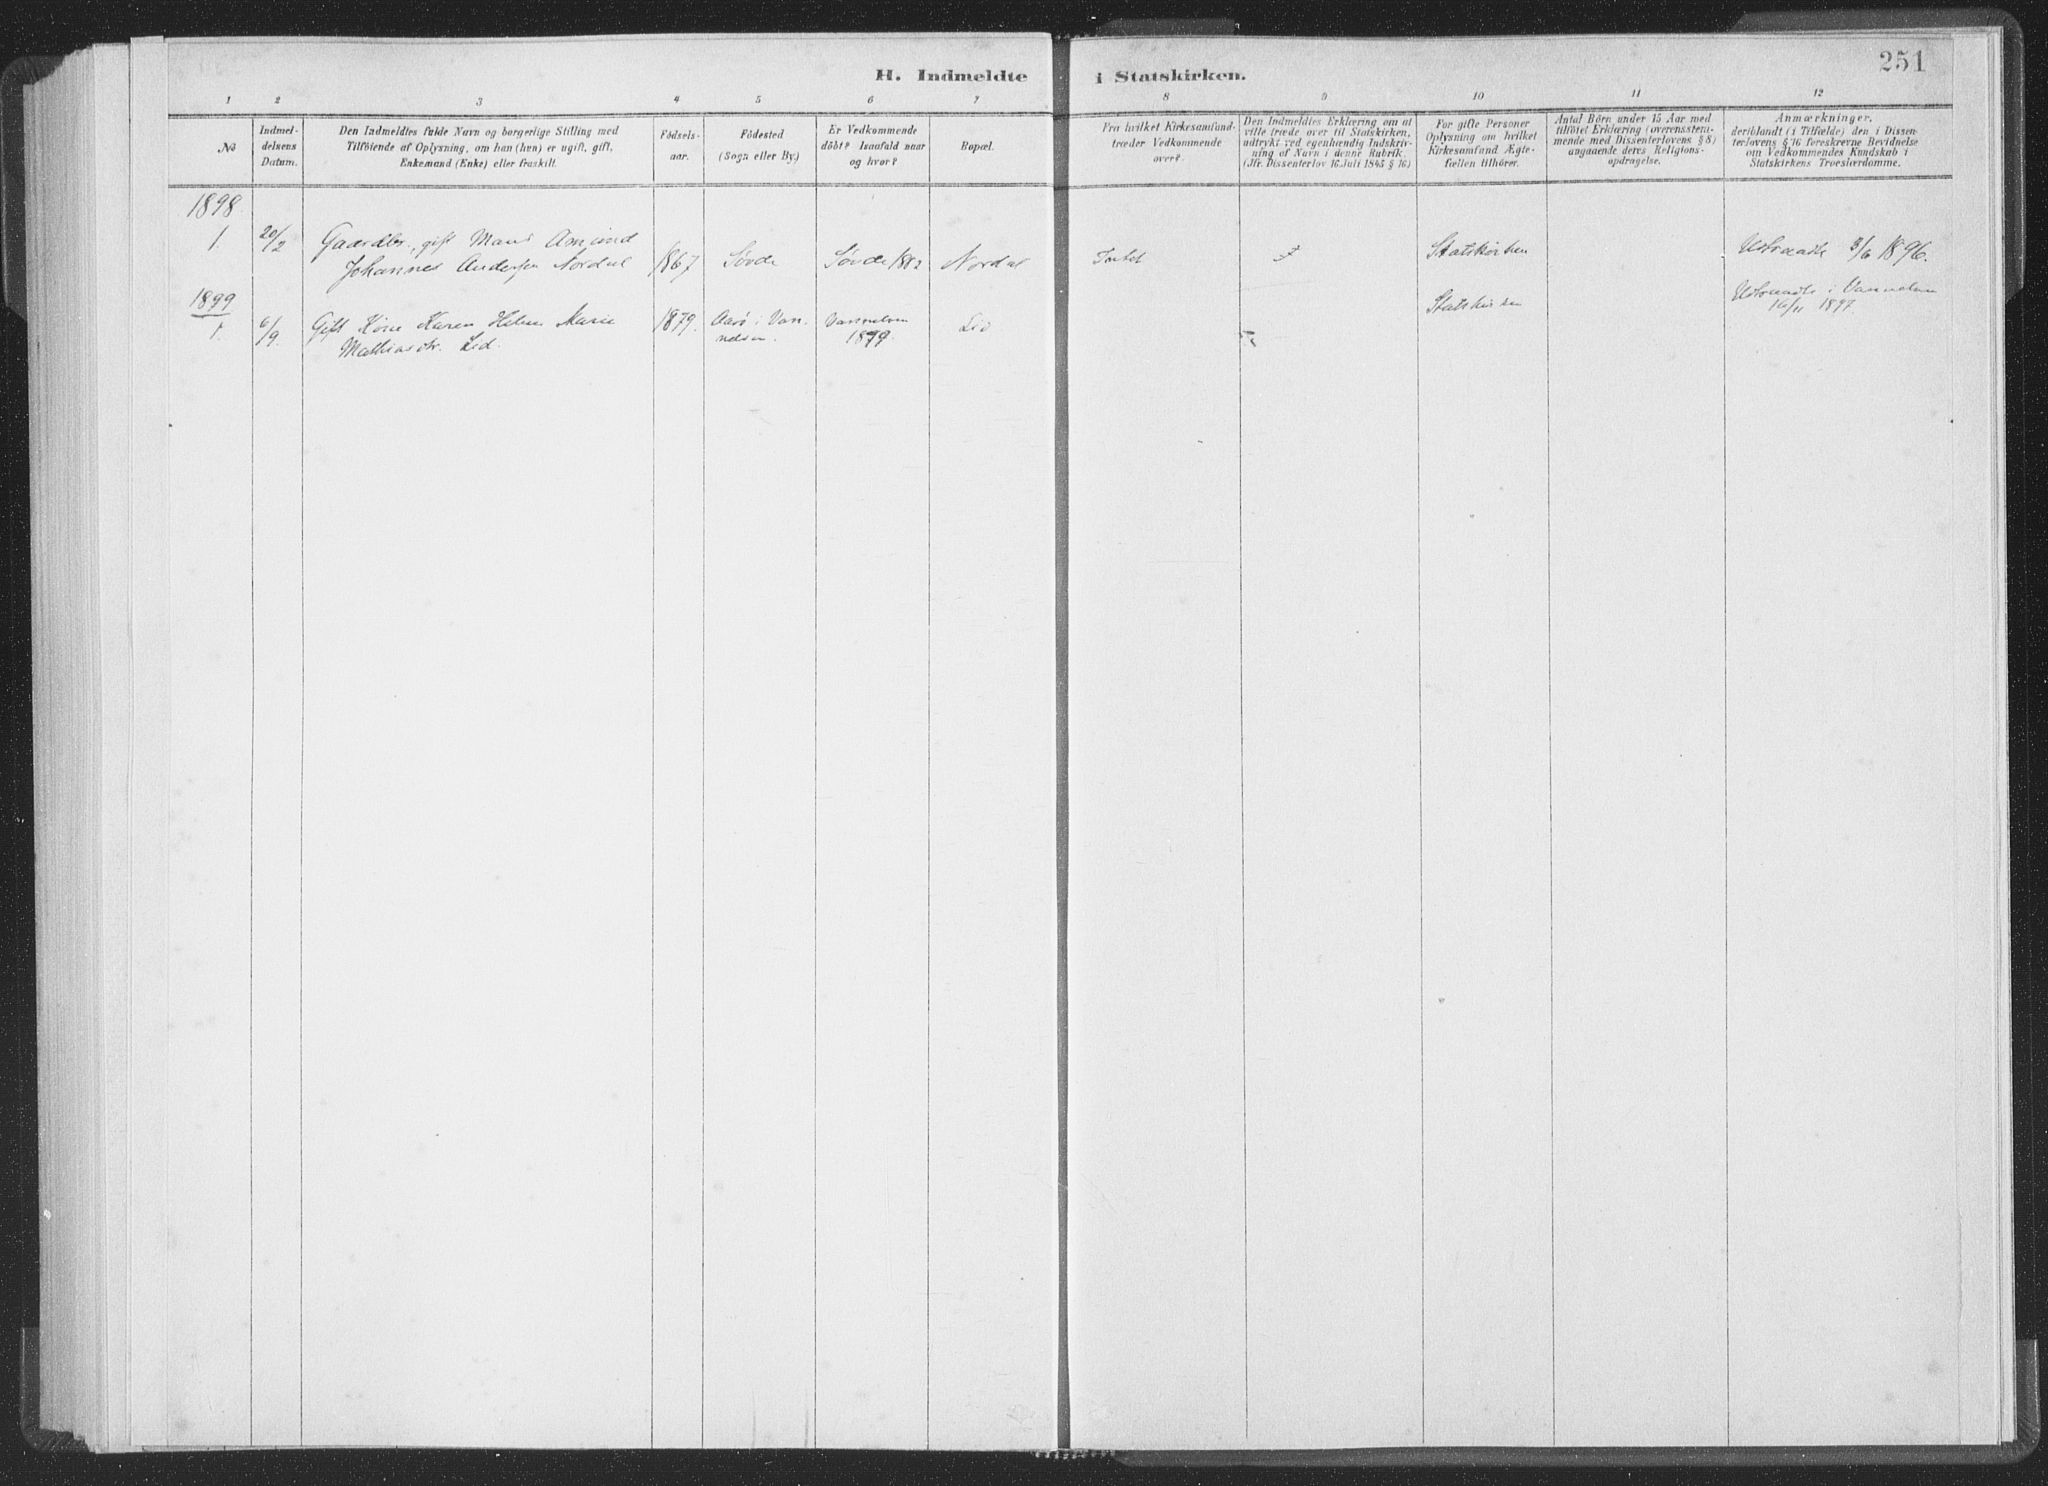 251
H. Indmeldte i Statskirken.
1 2 3 4 5 6 7 8 9 10 11 12
No
Indmel-
delsens
Datum.
Den Indmeldtes fulde Navn og borgerlige Stilling med
Tilföiende af Oplysning, om han (hun) er ugift, gift,
Enkemand (Enke) eller fraskilt.
Födsels-
aar.
Födested
(Sogn eller By.)
Er Vedkommende
döbt? Isaafald naar
og hvor?
Bopæl.
Fra hvilket Kirkesamfund
træder Vedkommende
over?
Den Indmeldtes Erklæring om at
ville træde over til Statskirken,
udtrykt ved egenhændig Indskriv-
ning af Navn i denne Rubrik.
(Jfr. Dissenterlov 16 Juli 1845 § 16)
For gifte Personer
Oplysning om hvilket
Kirkesamfund Ægte-
fællen tilhörer.
Antal Börn under 15 Aar med
tilföiet Erklæring (overensstem-
mende med Dissenterlovens § 8)
angaaende deres Religions-
opdragelse.
Anmærkninger,
deriblandt (i Tilfælde) den i Dissen-
terlovens § 16 foreskrevne Bevidnelse
om Vedkommendes Kundskab i
Statskirkens Troeslærdomme.
1898
1. 20/2 Gaardbr., gift Mand Amund
Johannes Andersen Nordal 1867 Søvde Søvde 1882 Nordal Intet Statskirken Udtraadt 3/6 1896.
1899
1. 6/9 Gift Kone Karen Helene Marie
Mathiasdtr. Lid. 1879. Aarø i Van-
nelven. Vannelven
1879. Lid Statskirken Udtraadt i Vannelven
16/11 1897.